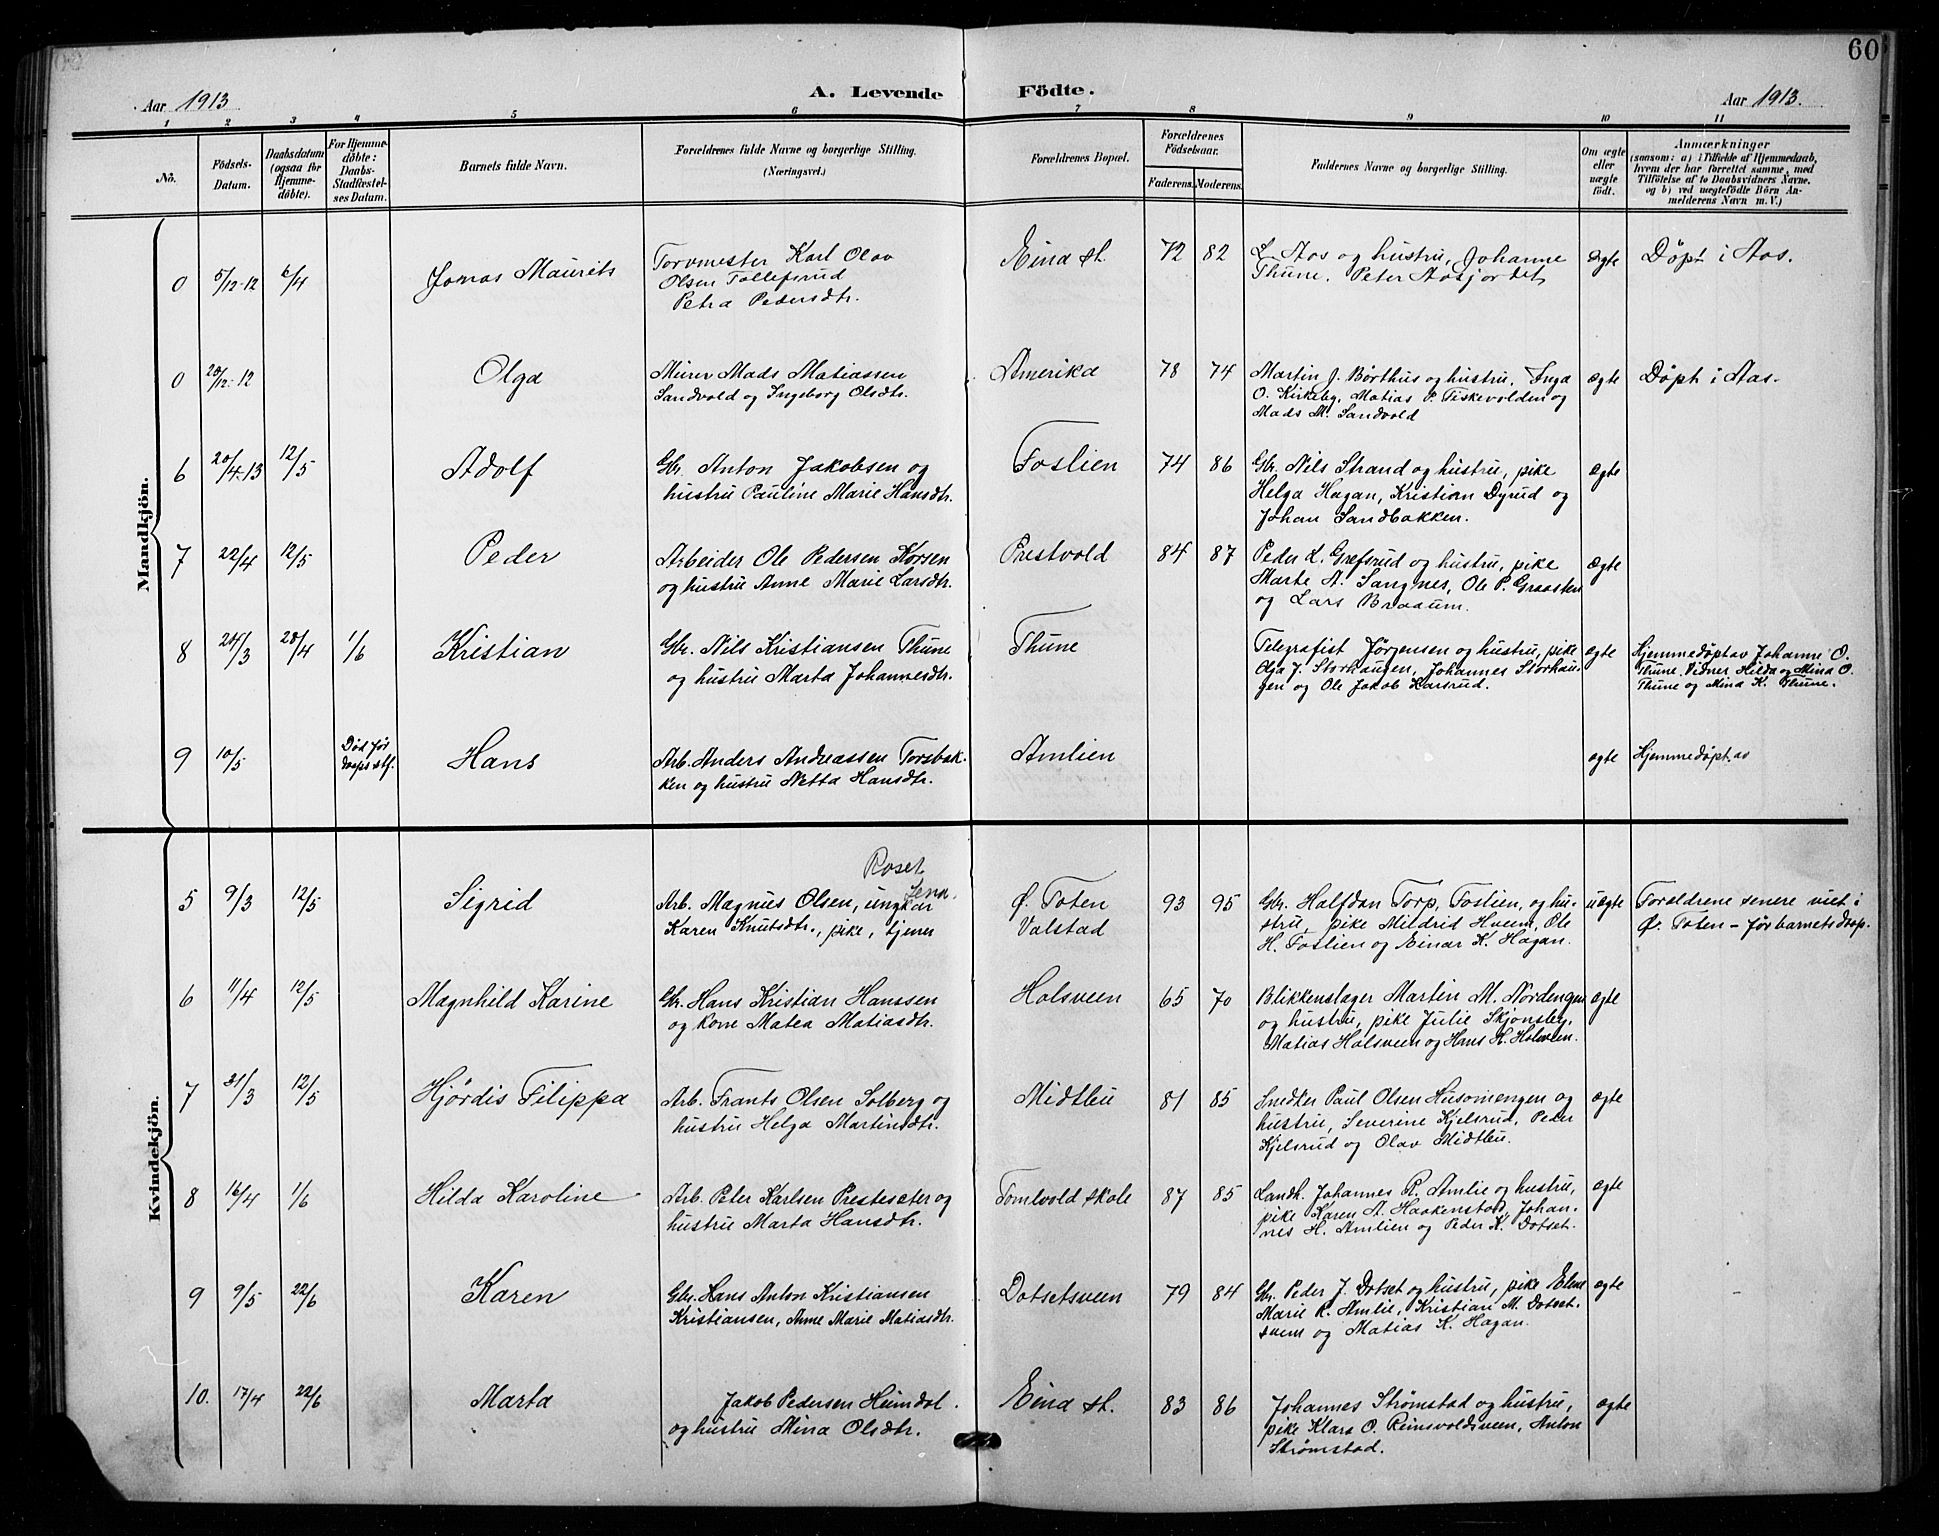 60
Aar 1913
A. Levende Födte.
Aar 1913.
1 2 3 4 5 6 7 8 9 10 11
No.
Födsels-
Datum.
Daabsdatum
(ogsaa for
Hjemme-
döbte).
For Hjemme-
döbte:
Daabs-
Stadfæstel-
ses Datum.
Barnets fulde Navn.
Forældrenes fulde Navne og borgerlige Stilling.
(Næringsvei.)
Forældrenes Bopæl.
Forældrenes
Födselsaar.
Faderens. Moderens.
Faddernes Navne og borgerlige Stilling.
Om ægte
eller
uægte
födt.
Anmærkninger
(saasom: a) i Tilfælde af Hjemmedaab,
hvem der har forrettet samme, med
Tilföielse af to Daabsvidners Navne,
og b) ved uægtefödte Börn An-
melderens Navn m. V.)
Mandkjön.
0 5/12-12 6/4 Jonas Maurits
Torvmester Karl Olav
Olsen Tollefsrud
Petra Pedersdtr.
Eina st. 72 82
L. Aas og hustru, Johanne
Thune. Peter Aasjordet
ægte Døpt i Aas.
0 20/12-12 Olga
Murer Mads Matiassen
Sandvold og Ingeborg Olsdtr.
Amerika 78 74
Martin J. Børthus og hustru, Inga
O. Kirkeby, Matias P. Fiskevolden og
Mads M. Sandvold
ægte Døpt i Aas.
6 20/4-13 12/5 Adolf
Gbr. Anton Jakobsen og
hustru Pauline Marie Hansdtr.
Foslien 74 86
Gbr. Nils Strand og hustru, pike
Helga Hagan, Kristian Dyrud og
Johan Sandbakken.
ægte
7 22/4 12/5 Peder
Arbeider Ole Pedersen Korsen
og hustru Anne Marie Larsdtr.
Prestvold 84 87
Peder L. Græfsrud og hustru, pike
Marte A. Sangnes, Ole P. Graasten
og Lars Braaum.
ægte
8 24/3 20/4 1/6 Kristian
Gbr. Nils Kristiansen Thune
og hustru Marta Johannesdtr.
Thune
Telegrafist Jørgensen og hustru, pike
Olga J. Storhaugen, Johannes Storhau-
gen og Ole Jakob Karsrud.
ægte
Hjemmedøpt av Johanne O.
Thune. Vidner Hilda og Mina O.
Thune og Mina K. Thune.
9 10/5
Død før
daapsstf.
Hans
Arb. Anders Andreassen Torsbak-
ken og hustru Netta Hansdtr.
Amlien
ægte Hjemmedøpt av
Kvindekjön.
5 9/3 12/5 Sigrid
Roset
Arb. Magnus Olsen, ungkar
Karen Knutsdtr., pike, tjener
Ø. Toten
Valstad
93 95
Gbr. Halfdan Torp, Foslien, og hu-
stru, pike Mildrid Hveem, Ole
H. Foslien og Einar K. Hagan.
uægte
Foreldrene senere viet i
Ø. Toten - før barnets daap.
6 11/4 12/5 Magnhild Karine
Gbr. Hans Kristian Hanssen
og kone Matea Matiasdtr.
Halsveen 65 70
Blikkenslager Martin M. Nordengen
og hustru, pike Julie Skjønsby,
Matias Halsveen og Hans H. Halsveen.
ægte
7 31/3 12/5 Hjørdis Filippa
Arb. Frants Olsen Solberg og
hustru Helga Martinsdtr.
Midtliu 81 85
Snedker Paul Olsen Husomengen og
hustru, Severine Kjelsrud, Peder
Kjelsrud og Olav Midtliu.
ægte
8 16/4 1/6 Hilda Karoline
Arb. Peter Karlsen Prestesæter og
hustru Marta Hansdtr.
Tomlvold skole 87 85
Landh. Johannes R. Amlie og hustru,
pike Karen A. Haakenstad, Johan-
nes H. Amlien og Peder K. Dotset.
ægte
9 9/5 22/6 Karen
Gbr. Hans Anton Kristiansen
Kristiansen, Anne Marie Matiasdtr.
Dotsetsveen 79 84
Gbr. Peder J. Dotset og hustru, pike Elene
Marie R. Amlie, Kristian M. Dotset-
sveen og Matias K. Hagan.
ægte
10. 17/4 22/6 Marta
Jakob Pedersen Heimdal
og hustru Mina Olsdtr.
Eina st. 83 86
Johannes Strømstad og hustru,
pike Klara O. Reinsvoldsveen, Anton
Strømstad.
ægte